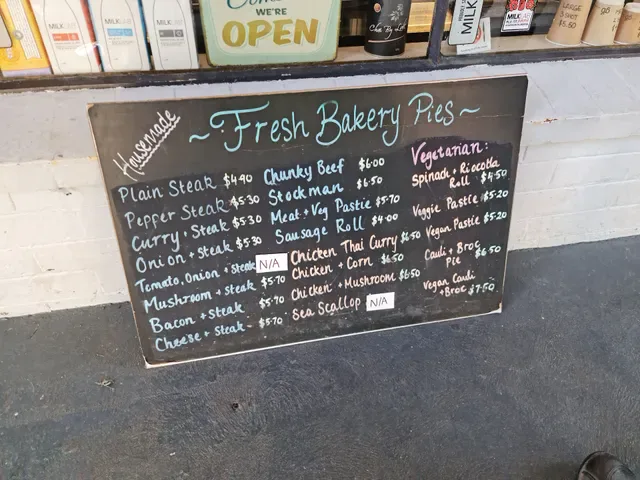 MILKLAB
MILKLAB
WE'RE
OPEN
MILK
MILKLAB
LARGE
$5.50
Housemade
~ Fresh Bakery Pies ~
Plain Steak $4.90
Pepper Steak $5.30
Curry + Steak $5.30
Onion + Steak $5.30
Tomato, Onion + Steak N/A
Mushroom + Steak $5.70
Bacon + Steak $5.70
Cheese + Steak $5.70
Chunky Beef $6.00
Stockman $6.50
Meat + Veg Pastie $5.70
Sausage Roll $4.00
Chicken Thai Curry $6.50
Chicken + Corn $6.50
Chicken + Mushroom $6.50
Sea Scallop N/A
Vegetarian:
Spinach + Riocotta
Roll $4.50
Veggie Pastie $5.20
Vegan Pastie $5.20
Cauli + Broc
Pie $6.50
Vegan Cauli
+ Broc $7.50